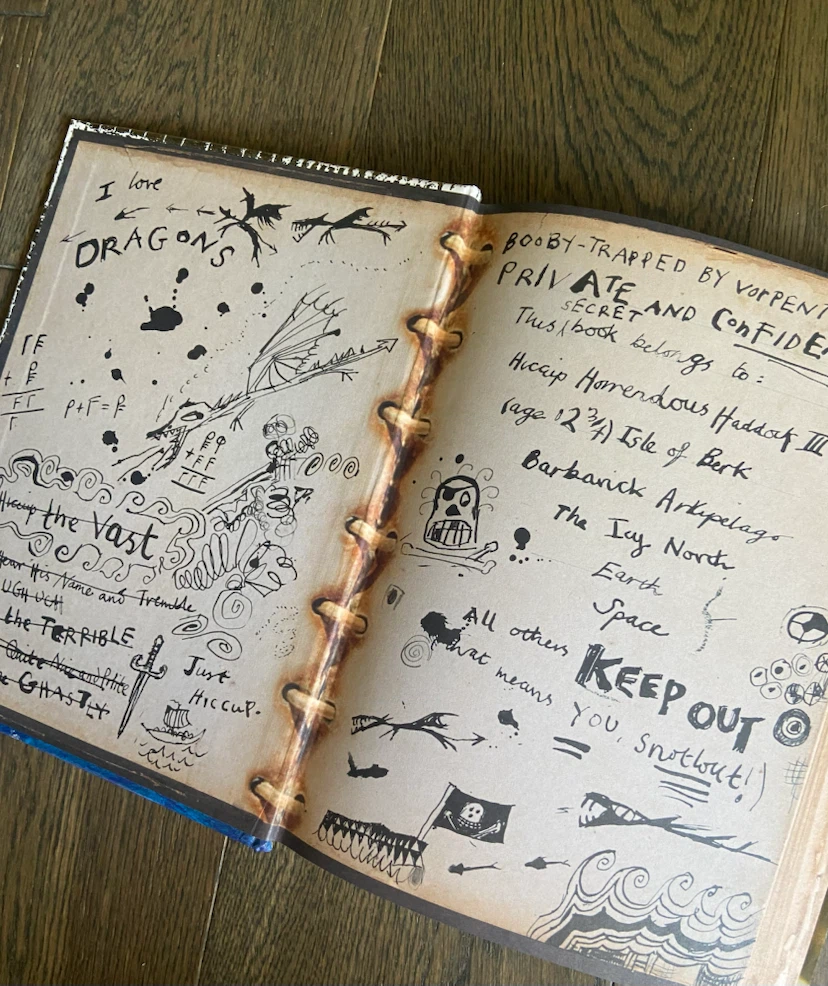 I love
DRAGONS
P+F=F
Hiccup the Vast
Hear His Name and Tremble
UGH UGH
the TERRIBLE
Quite Nice and Polite
the GHASTLY
Just
HICCUP.
BOOBY-TRAPPED BY VORPENT
PRIVATE AND CONFIDE
SECRET
This book belongs to:
Hiccup Horrendous Haddock III
(age 12 3/4) Isle of Berk
Barbarick Arkipelago
The Icy North
Earth
Space
All others KEEP OUT
that means YOU, Snotlout!)